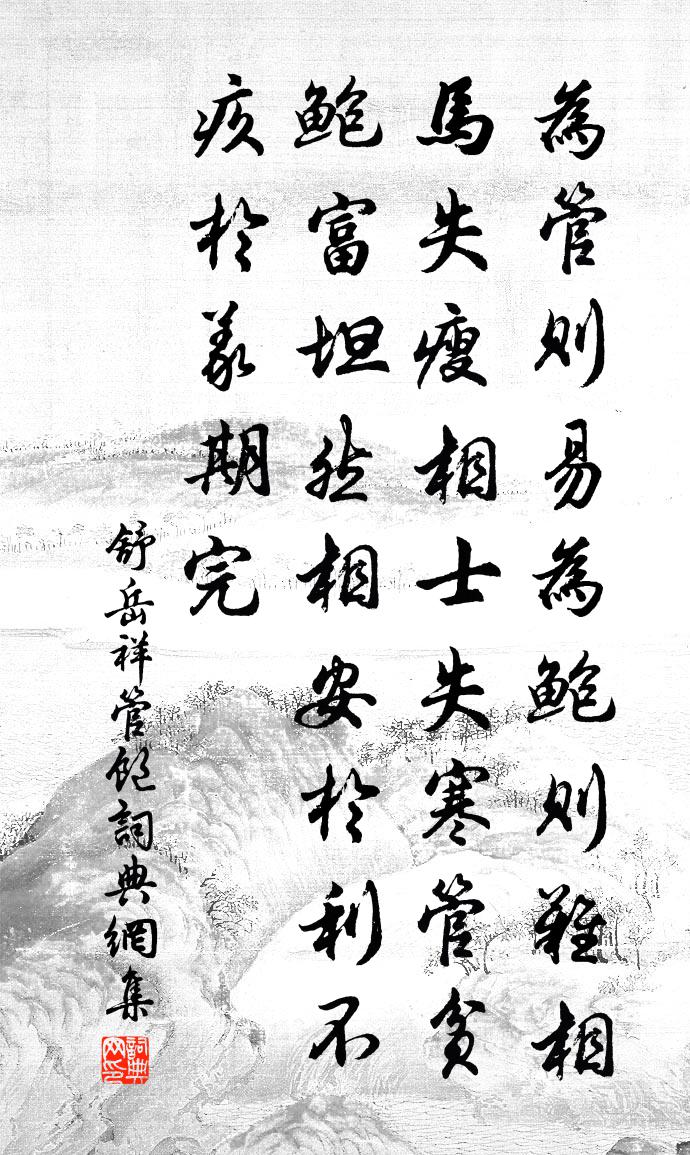 為管則易為鮑則難相
馬失瘦相士失寒管貧
鮑富坦然相安於利不
疚於義期完
舒岳祥管鮑詞典網集
詞典网印